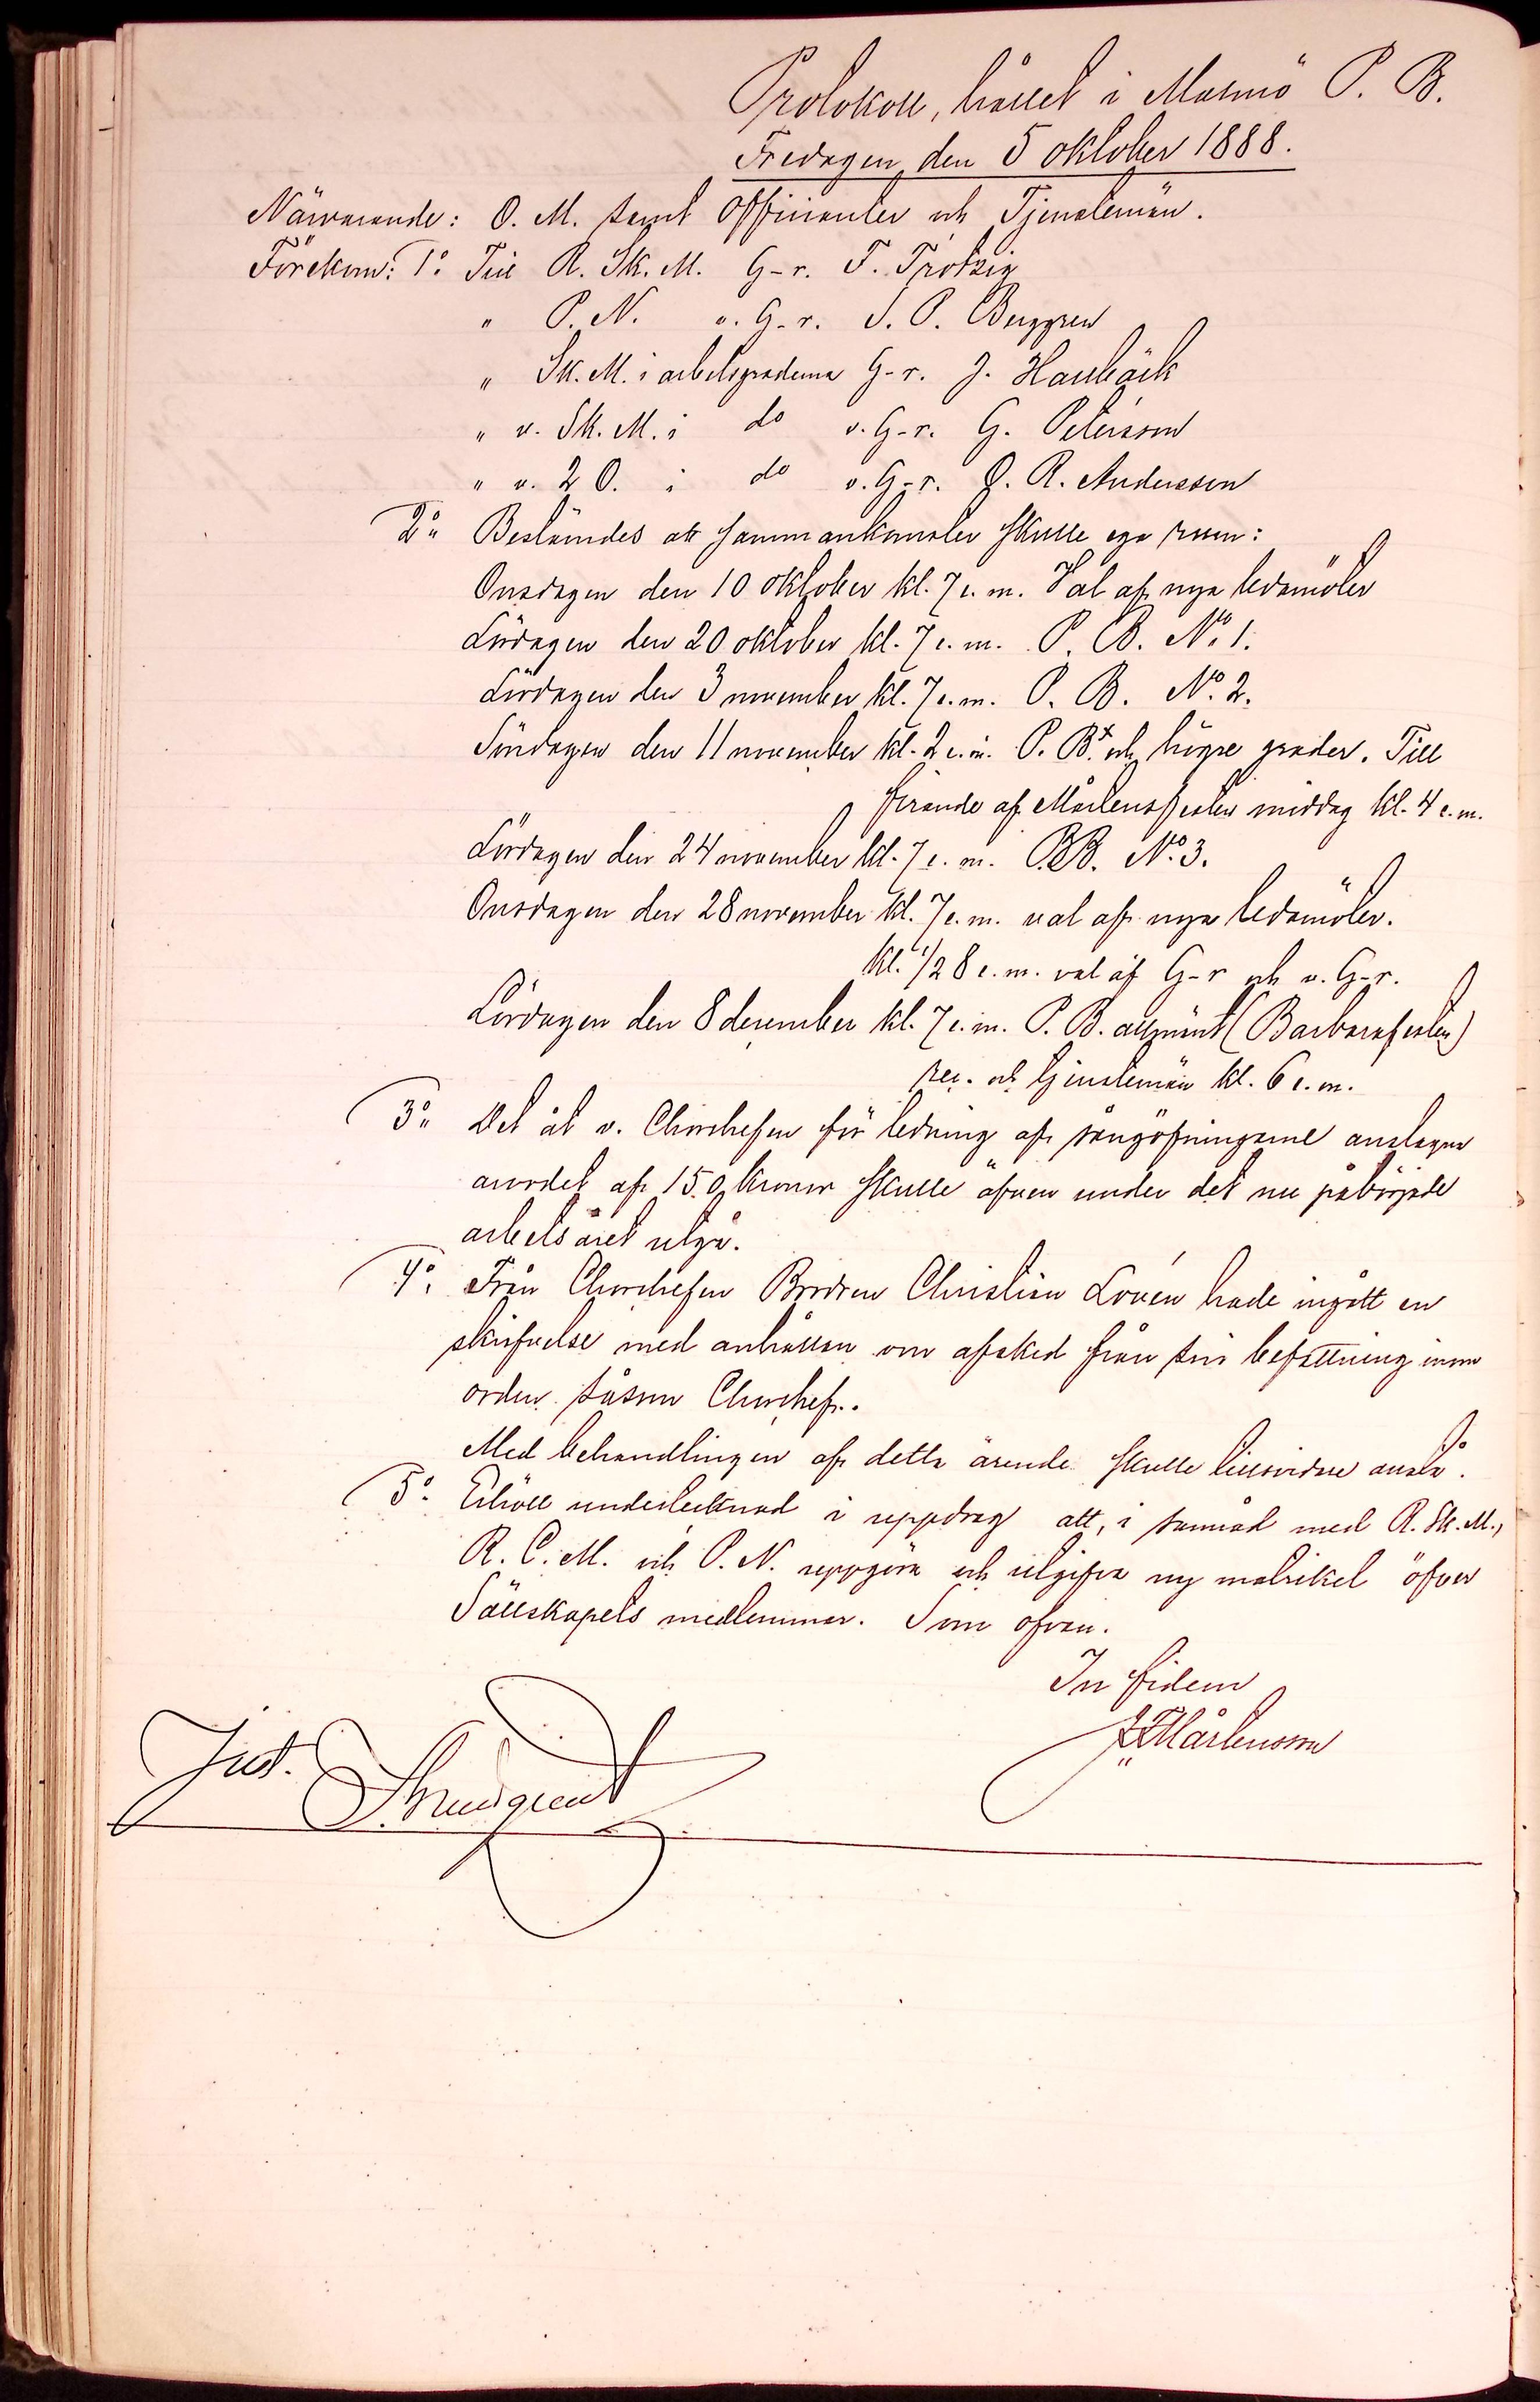 Protokoll, hållet i Malmö P. B.
Fredagen den 5 oktober 1888.
Närvarande: O. M. samt Officianter och Tjenstemän.
Förekom: 1º Till R. Sk. M. G-r. F. Trotzig
" P. N. v. G-r. S. P. Berggren
" Sk. M. i arbetsgraderna G-r. J. Hallbäck
" v. Sk. M. i dº v. G-r. G. Petersson
" v. 2 O. i dº v. G-r. O. R. Andersson
2º Bestämdes att sammankomster skulle ega rum:
Onsdagen den 10 oktober kl. 7 e. m. Val af nya ledamöter
Lördagen den 20 oktober kl. 7 e. m. P. B. Nº 1.
Lördagen den 3 november kl. 7 e. m. P. B. Nº 2.
Söndagen den 11 november kl. 2 e. m. P. B. och högre grader. Till
firande af Mårtensfesten middag kl. 4 e. m.
Lördagen den 24 november kl. 7 e. m. P. B. Nº 3.
Onsdagen den 28 november kl. 7 e. m. val af nya ledamöter.
kl. 1/2 8 e. m. val af G-r och v. G-r.
Lördagen den 8 december kl. 7 e. m. P. B. allmänt (Barbarafesten)
rec. och tjenstemän kl. 6 e. m.
3º Det åt v. Chorchefen för ledning af sångöfningarne anslagna
arvodet af 150 kronor skulle äfven under det nu påbörjade
arbetsåret utgå.
4º Från Chorchefen Brodren Christian Lovén hade ingått en
skrifvelse med anhållan om afsked från sin befattning inom
orden såsom Chorchef.
Med behandlingen af detta ärende skulle tillsvidare anstå.
5º Erhöll undertecknad i uppdrag att, i samråd med R. Sk. M.,
R. C. M. och P. N. uppgöra och utgifva ny matrikel öfver
Sällskapets medlemmar. Som ofvan.
In fidem
Mårtensson
Just.